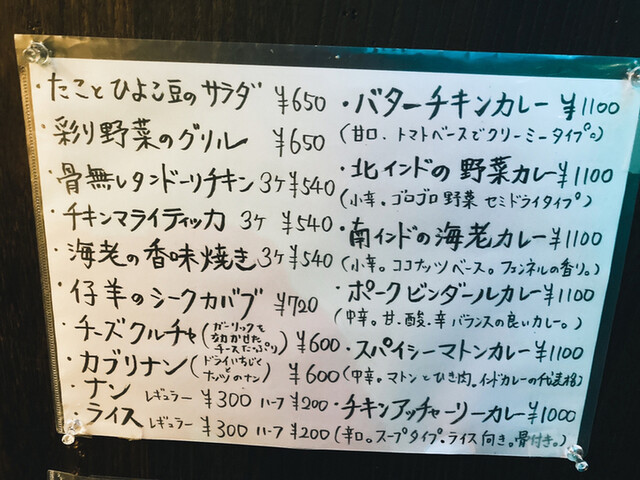 ・たことひよこ豆のサラダ ¥650
・彩り野菜のグリル ¥650
・骨無しタンドーリチキン 3ケ ¥540
・チキンマライティッカ 3ケ ¥540
・海老の香味焼き 3ケ ¥540
・仔羊のシークカバブ ¥720
・チーズクルチャ(ガーリックをきかせたチーズたっぷり) ¥600
・カブリナン(ドライいちじくとナッツのナン) ¥600
・ナン レギュラー ¥300 ハーフ ¥200
・ライス レギュラー ¥300 ハーフ ¥200
・バターチキンカレー ¥1100
(甘口、トマトベースでクリーミータイプ。)
・北インドの野菜カレー ¥1100
(小辛。ゴロゴロ野菜 セミドライタイプ)
・南インドの海老カレー ¥1100
(小辛。ココナッツベース。フェンネルの香り。)
・ポークビンダールカレー ¥1100
(中辛。甘、酸、辛 バランスの良いカレー。)
・スパイシーマトンカレー ¥1100
(中辛。マトンとひき肉。インドカレーの代表格)
・チキンアッチャーリーカレー ¥1000
(辛口。スープタイプ。ライス向き。骨付き。)